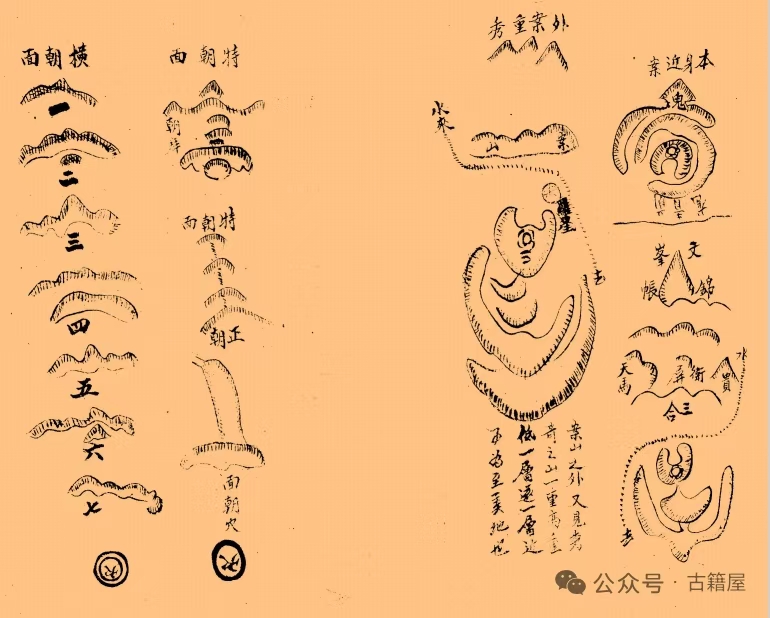 本身近案
鬼
文峯
錦帳
水
天馬
三合
去
外案重秀
水來
案山
羅星
去
案山之外又見秀
奇之山一重高重
低一層遠一層近
不為至美地也
特朝面
特朝面
正朝
面朝穴
穴
橫朝面
一
二
三
四
五
六
七
穴
公众号 · 古籍屋